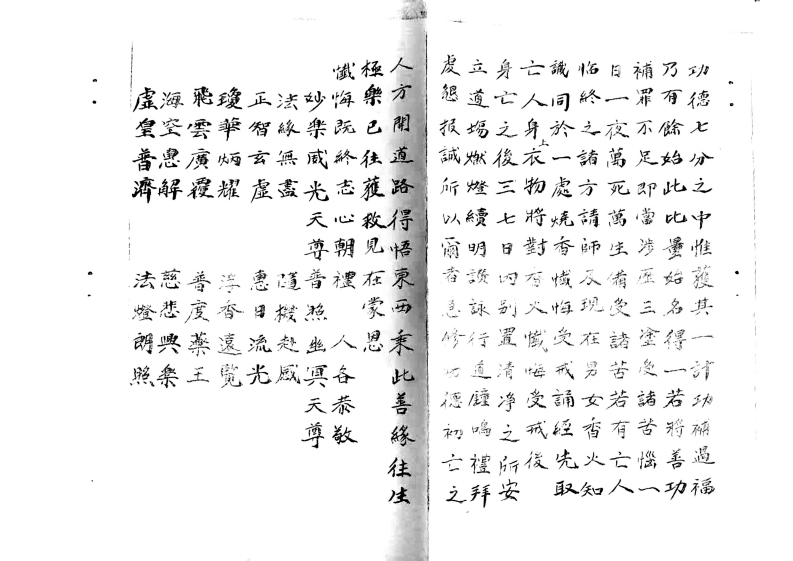 功德七分之中惟獲其一計功補過福
乃有餘始此比量始名得一若將善功
補罪不足即當涉歷三塗受諸苦惱一
日一夜萬死萬生備受諸苦若有亡人
臨終之諸方請師及現在男女香火知
識同於一處燒香懺悔受戒誦經先取
亡人身上衣物將對香火懺悔受戒後
身亡之後三七日內別置清净之所安
立道場燃燈續明讚詠行道鐘鳴禮拜
虔懇投誠所以爾者急修功德初亡之
人方開道路得悟東西乘此善緣往生
極樂已往獲救見在蒙恩
懺悔既終志心朝禮 人各恭敬
妙樂威光天尊 普照幽冥天尊
法緣無盡 隨機赴感
正智玄虛 惠日流光
瓊華炳耀 浮香遠覧
飛雲廣覆 普度藥王
海空惠解 慈悲興樂
虛皇普濟 法燈朗照